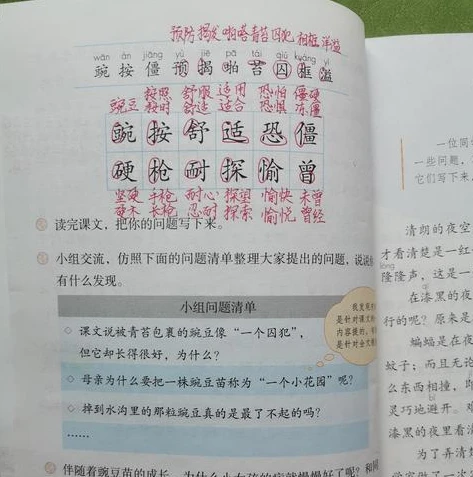 预防 揭发 啪嗒 青苔 囚犯 相框 洋溢
wān àn jiāng yù jiē pā tái qiú kuàng yì
豌 按 僵 预 揭 啪 苔 囚 框 溢
按照 舒服 适用 恐怕 僵硬
豌豆 按时 舒适 适合 恐惧 冻僵
豌 按 舒 适 恐 僵
硬 枪 耐 探 愉 曾
坚硬 手枪 耐心 探望 愉快 未曾
硬木 长枪 忍耐 探索 愉悦 曾经
读完课文,把你的问题写下来。
小组交流,仿照下面的问题清单整理大家提出的问题,说说
有什么发现。
小组问题清单
◇ 课文说被青苔包裹的豌豆像“一个囚犯”,
但它却长得很好,为什么?
◇ 母亲为什么要把一株豌豆苗称为“一个小花园”呢?
◇ 掉到水沟里的那粒豌豆真的是最了不起的吗?
……
我发现
是针对课文
内容提的,
是针对全文
伴随着豌豆苗的成长,为什么小女孩的病就慢慢好了呢?和同
一位同
一些问题,
它们写下来
清朗的夜空
才看清楚是一红
lóng
隆隆声,这是一
在漆黑的夜
行的呢?原来是
蝙蝠是在夜
蚊子;而且无论
么东西相撞,
灵巧地避开。
漆黑的夜里看
为了弄清